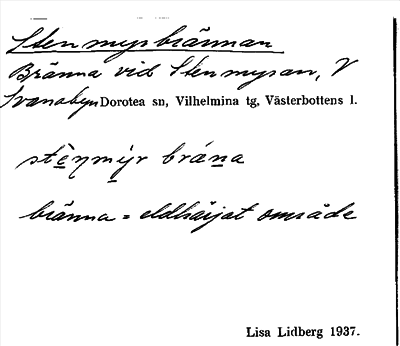 Stenmyrbrännan
Bränna vid Stenmyran, V
Svanabyn Dorotea sn, Vilhelmina tg, Västerbottens l.
stèn̥mỳr brána
bränna = eldhärjat område
Lisa Lidberg 1937.